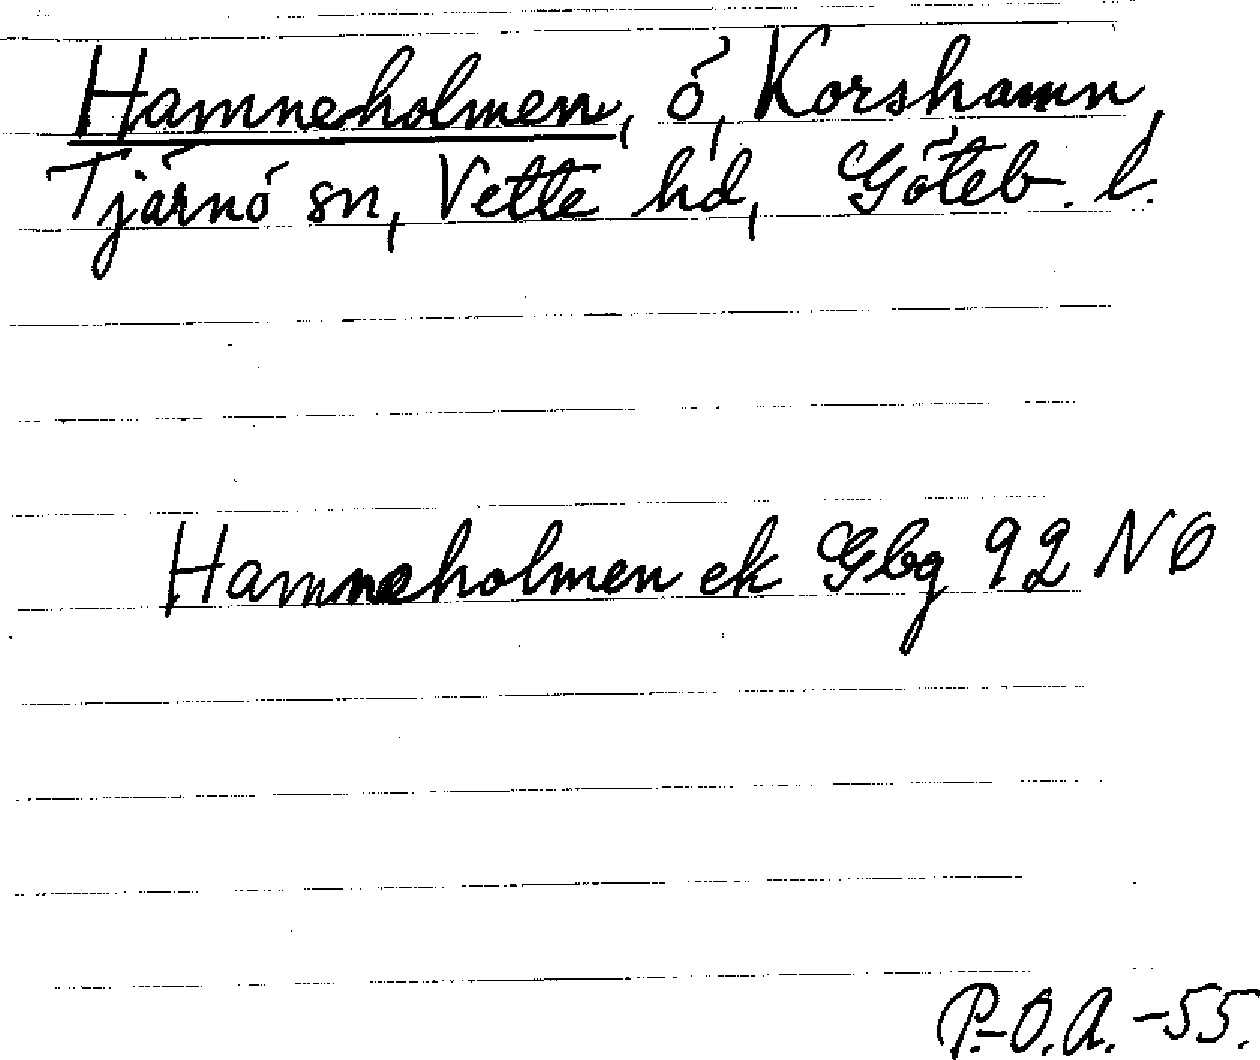 Hamneholmen, ö, Korshamn,
Tjärnö sn, Vette hd, Göteb. l.
Hamneholmen ek Gbg 92 NO
P.-O.A. -55.